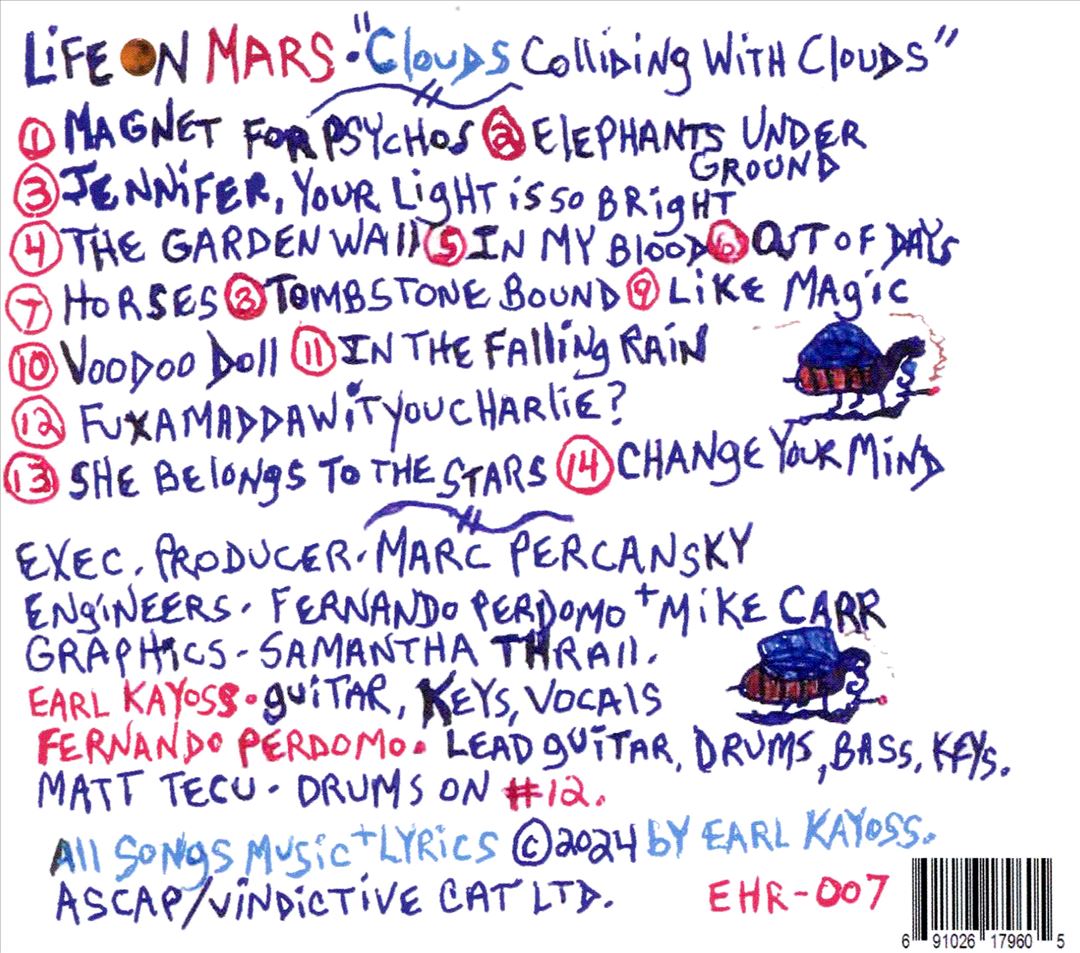 LiFE ON MARS · "Clouds Colliding With Clouds"
1 MAGNET FOR PSYCHOS 2 ElEPHANTS UNDER
GROUND
3 JENNiFER, YOUR LigHT iS SO BRigHT
4 THE GARDEN WAll 5 IN MY BlooD 6 OUT OF DAYS
7 HORSES 8 TOMBSTONE BOUND 9 LiKE MAgic
10 VOODOO Doll 11 IN THE FAlliNg RAiN
12 FUXAMADDAWiTYOUCHARliE?
13 SHE BEloNgS To THE STARS 14 CHANgE YOUR MiND
EXEC. PRODUCER · MARC PERCANSKY
ENgiNEERS · FERNANDO PERDOMO + MiKE CARR
GRAPHiCS - SAMANTHA THRAll.
EARL KAYOSS · guiTAR, KEYS, VOCAlS
FERNANDO PERDOMO · LEAD guiTAR, DRUMS, BASS, KEYS.
MATT TECU · DRUMS ON #12.
All SONgS MUSiC + LYRiCS © 2024 bY EARL KAYOSS.
ASCAP/ViNDiCTiVE CAT LTD. EHR-007
6 91026 17960 5